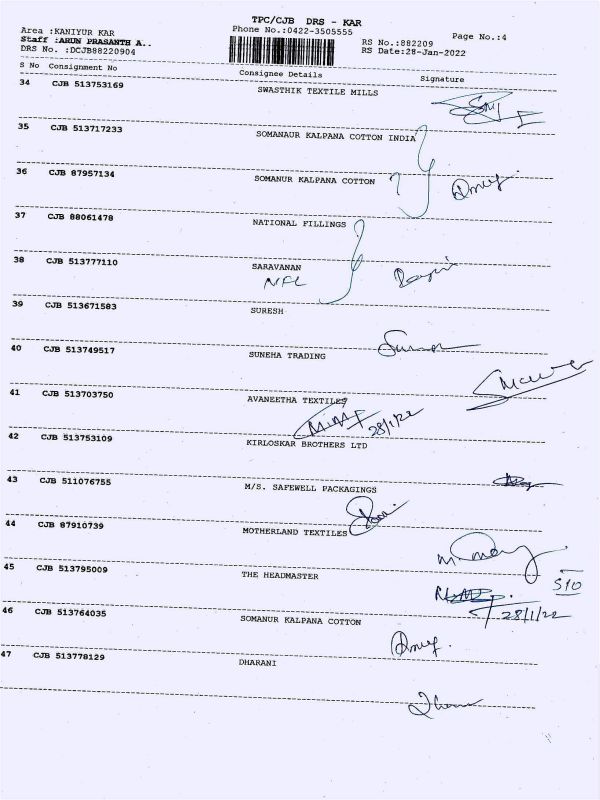 TPC/CJB DRS - KAR
Area :KANIYUR KAR
Phone No.:0422-3505555
Page No.:4
Staff :ARUN PRASANTH A..
RS No.:882209
DRS No. :DCJB88220904
RS Date:28-Jan-2022
S No Consignment No Consignee Details Signature
34 CJB 513753169 SWASTHIK TEXTILE MILLS
35 CJB 513717233 SOMANAUR KALPANA COTTON INDIA
36 CJB 87957134 SOMANUR KALPANA COTTON
37 CJB 88061478 NATIONAL FILLINGS
38 CJB 513777110 SARAVANAN
NFL
39 CJB 513671583 SURESH
40 CJB 513749517 SUNEHA TRADING
41 CJB 513703750 AVANEETHA TEXTILES
28/1/22
42 CJB 513753109 KIRLOSKAR BROTHERS LTD
43 CJB 511076755 M/S. SAFEWELL PACKAGINGS
44 CJB 87910739 MOTHERLAND TEXTILES
45 CJB 513795009 THE HEADMASTER
28/1/22
46 CJB 513764035 SOMANUR KALPANA COTTON
47 CJB 513778129 DHARANI